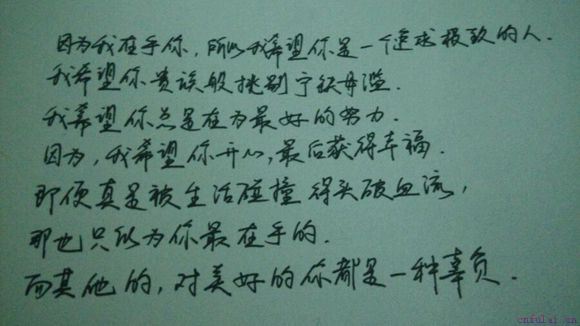 因为我在乎你，所以我希望你是一个追求极致的人.
我希望你贵族般挑剔宁缺毋滥.
我希望你总是在为最好的努力.
因为，我希望你开心，最后获得幸福.
即便真是被生活碰撞得头破血流，
那也只以为你最在乎的.
而其他的，对美好的你都是一种辜负.
cnfulai.cn